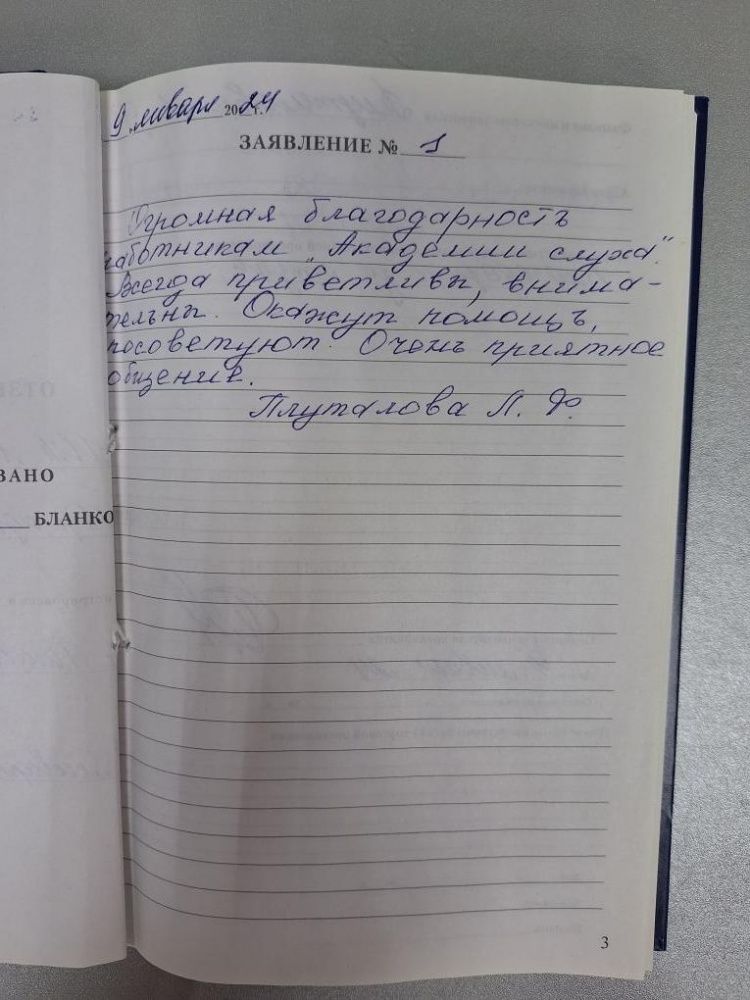 9 января 2024 г.
ЗАЯВЛЕНИЕ № 1
Огромная благодарность
работникам „Академии слуха".
Всегда приветливы, внима-
тельны. Окажут помощь,
посоветуют. Очень приятное
общение.
Плуталова Л. Ф.
ЗАНО
БЛАНКО
3